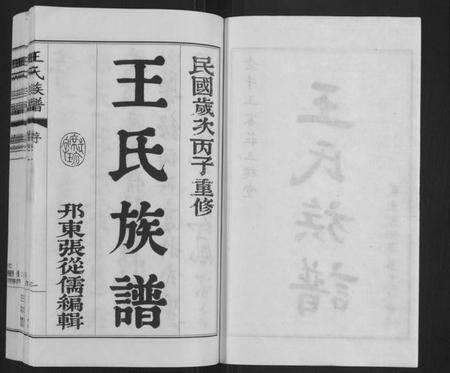 民國歲次丙子重修
王氏族譜
邦東張從儒編輯
王氏族譜